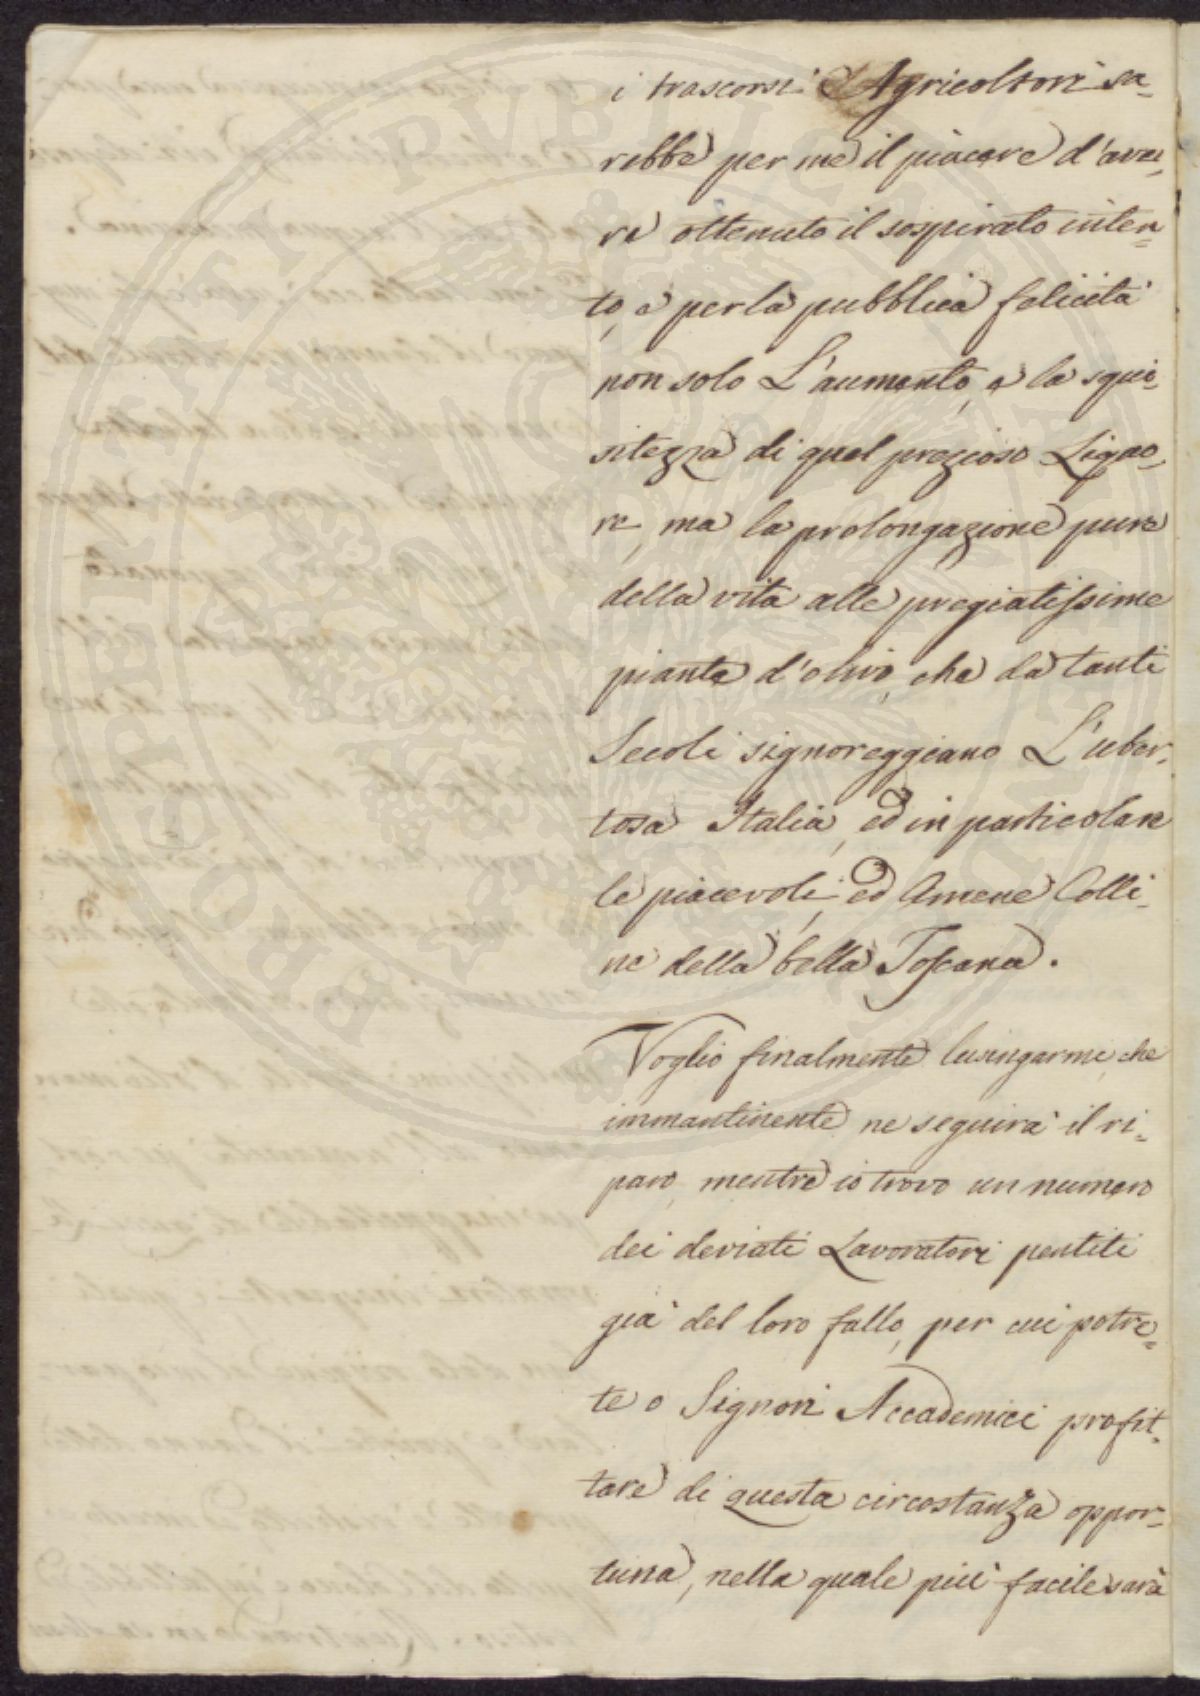 i trascorsi Agricoltori sa=
rebbe per me il piacere d'ave=
re ottenuto il sospirato inten=
to, e per la pubblica felicità
non solo L'aumento, e la squi=
sitezza di quel prezioso Liquo=
re, ma la prolongazione pure
della vita alle pregiatissime
piante d'olivo, che da tanti
Secoli signoreggiano L'uber=
tosa Italia, ed in particolare
le piacevoli, ed Amene Colli=
ne della bella Toscana.
Voglio finalmente lusingarmi, che
immantinente ne seguirà il ri=
paro, mentre io trovo un numero
dei deviati Lavoratori pentiti
già del loro fallo, per cui potre=
te o Signori Accademici profit=
tare di questa circostanza oppor=
tuna, nella quale più facile sarà